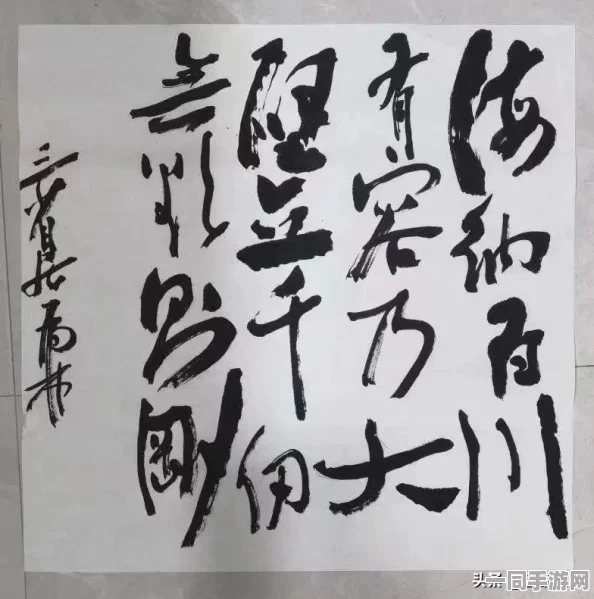 海纳百川
有容乃大
壁立千仞
无欲则刚
三省居
头条
一同手游网